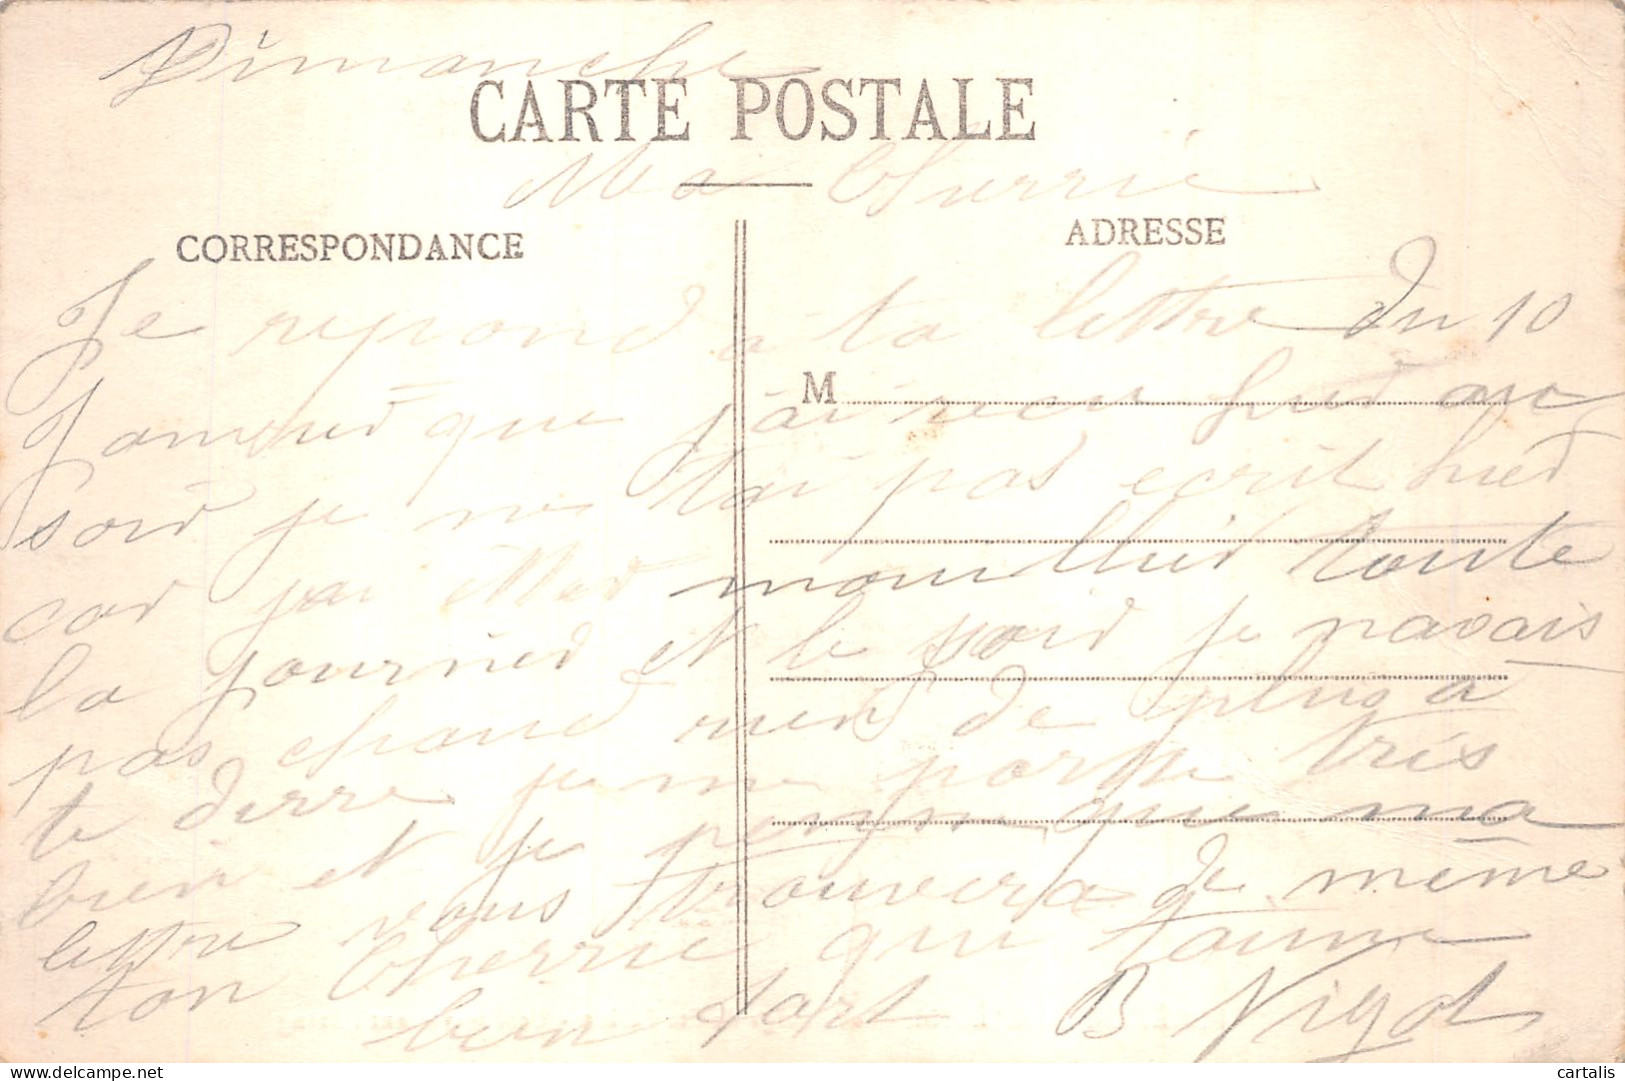 Dimanche
CARTE POSTALE
Ma Cherrie
CORRESPONDANCE
ADRESSE
Je repond à ta lettre du 10
M
que j'ai recu hied au
soid je ne tai pas ecrit hied
cad jai etted mouilleid toute
la journied et le soid je navais
pas chaud rien de plus a
te dirre je me porte tres
bien et je pense que ma
lettre vous trouvera de même
ton Cherrie qui taime
bien fort B Nigol
cartalis